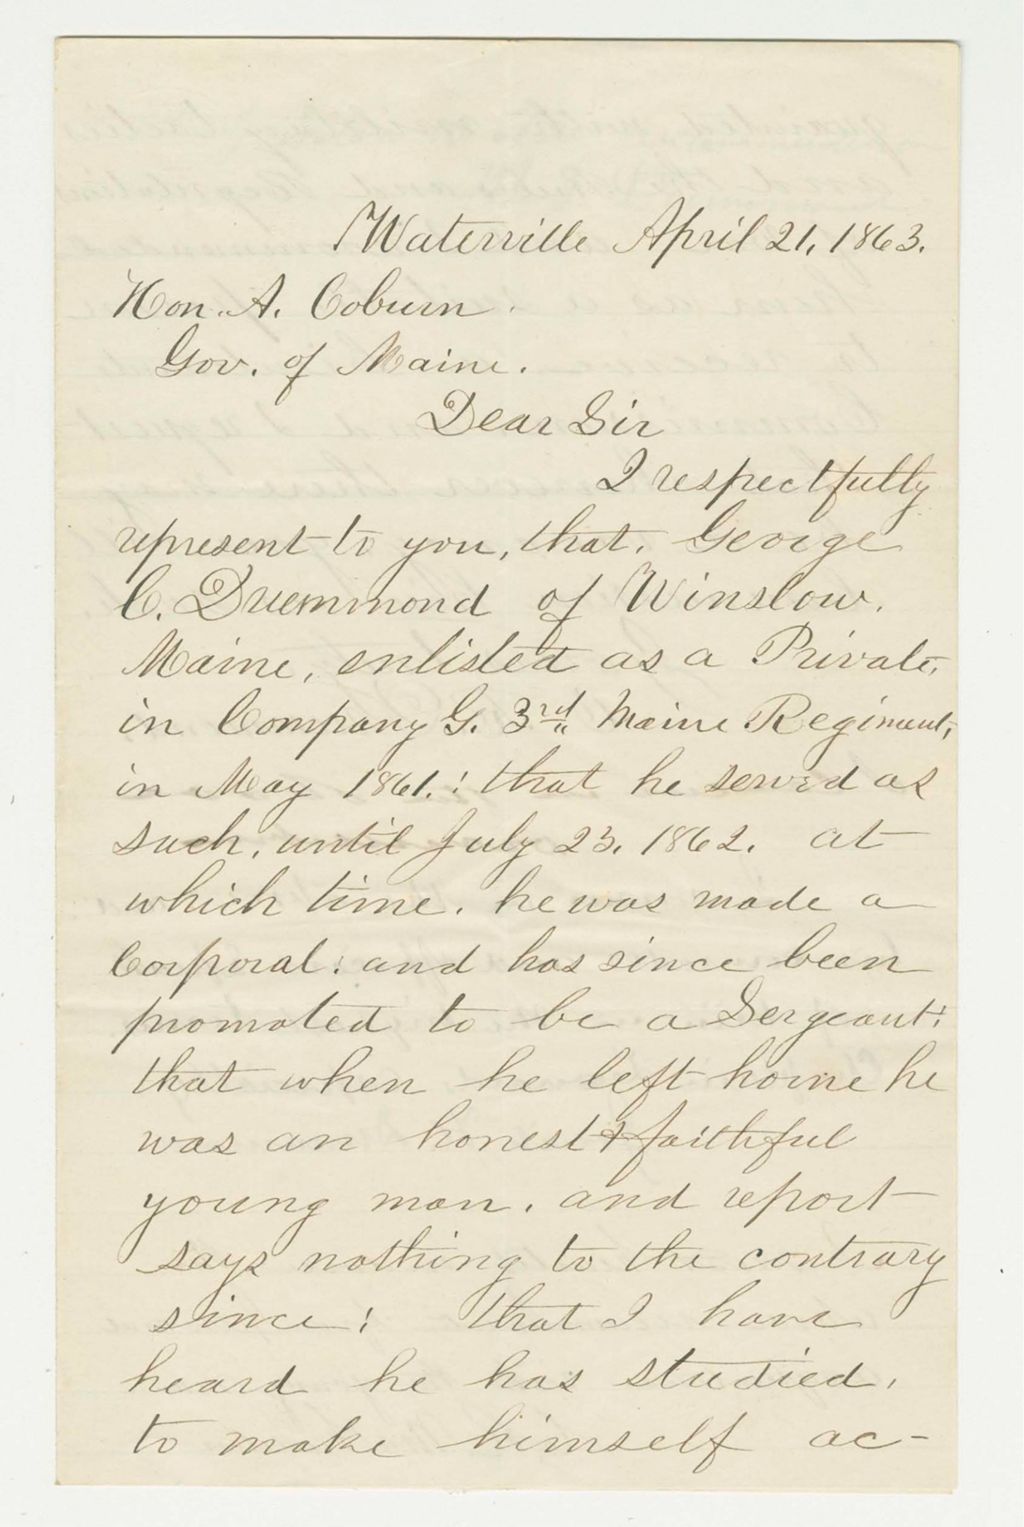 Waterville April 21, 1863.
Hon. A. Coburn.
Gov. of Maine.
Dear Sir
I respectfully
represent to you, that, George
C. Drummond of Winslow,
Maine, enlisted as a Private,
in Company G. 3rd Maine Regiment,
in May 1861.: that he served as
such, until July 23. 1862. at
which time, he was made a
Corporal: and has since been
promoted to be a Sergeant:
that when he left home he
was an honest & faithful
young man, and report
says nothing to the contrary
since: that I have
heard he has studied,
to make himself ac-